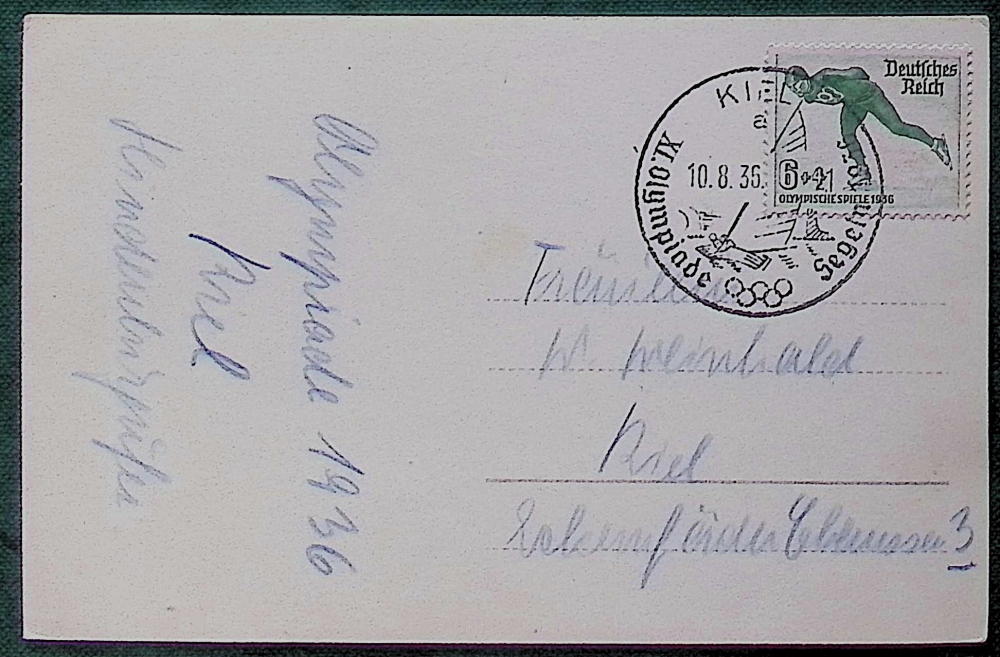 Olympiade 1936
Kiel
Hindenburgufer
Deutsches
Reich
6+4
OLYMPISCHE SPIELE 1936
KIEL
a
10.8.36.
XI. Olympiade
Segeln
Fräulein
W. Weinhold
Kiel
3